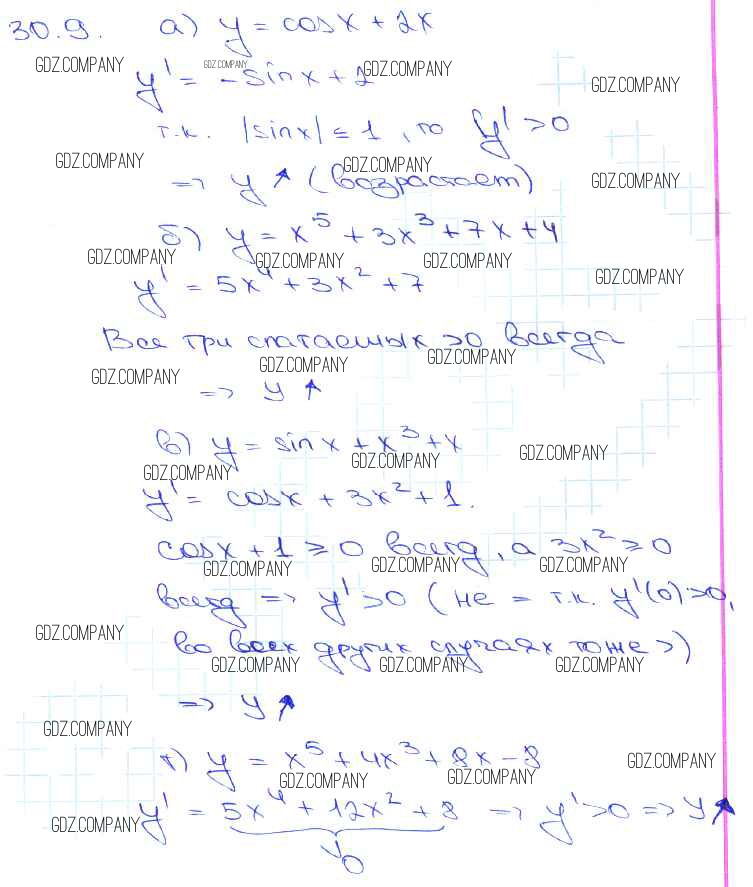 30.9. а) y = cosx + 2x
GDZ.COMPANY GDZ.COMPANY GDZ.COMPANY GDZ.COMPANY
y' = -sinx + 2
т.к. |sinx| ≤ 1, то y' > 0
GDZ.COMPANY GDZ.COMPANY GDZ.COMPANY
=> y ↑ (возрастает)
б) y = x⁵ + 3x³ + 7x + 4
GDZ.COMPANY GDZ.COMPANY GDZ.COMPANY GDZ.COMPANY
y' = 5x⁴ + 3x² + 7
Все три слагаемых >0 всегда
GDZ.COMPANY GDZ.COMPANY GDZ.COMPANY
=> y ↑
в) y = sinx + x³ + x
GDZ.COMPANY GDZ.COMPANY GDZ.COMPANY
y' = cosx + 3x² + 1.
cosx + 1 ≥ 0 всегд, а 3x² ≥ 0
GDZ.COMPANY GDZ.COMPANY GDZ.COMPANY
всегд => y' > 0 (не = т.к. y'(0) > 0,
GDZ.COMPANY
во всех других случаях тоже >)
GDZ.COMPANY GDZ.COMPANY GDZ.COMPANY
=> y ↑
GDZ.COMPANY
г) y = x⁵ + 4x³ + 8x - 8
GDZ.COMPANY GDZ.COMPANY GDZ.COMPANY
y' = 5x⁴ + 12x² + 8 => y' > 0 => y ↑
GDZ.COMPANY
∨0